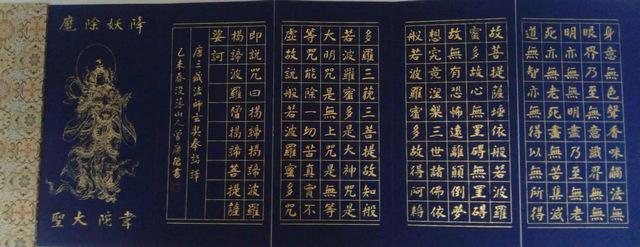 身意無色聲香味觸法無
眼界乃至無意識界無無
明亦無無明盡乃至無老
死亦無老死盡無苦集滅
道無智亦無得以無所得
故菩提薩埵依般若波羅
蜜多故心無罣礙無罣礙
故無有恐怖遠離顛倒夢
想究竟涅槃三世諸佛依
般若波羅蜜多故得阿耨
多羅三藐三菩提故知般
若波羅蜜多是大神咒是
大明咒是無上咒是無等
等咒能除一切苦真實不
虛故說般若波羅蜜多咒
即說咒曰揭諦揭諦波羅
揭諦波羅僧揭諦菩提薩
婆訶
唐三藏法師玄奘奉詔譯
乙未春沒落山人曾慶
書
降妖除魔
韋陀大聖